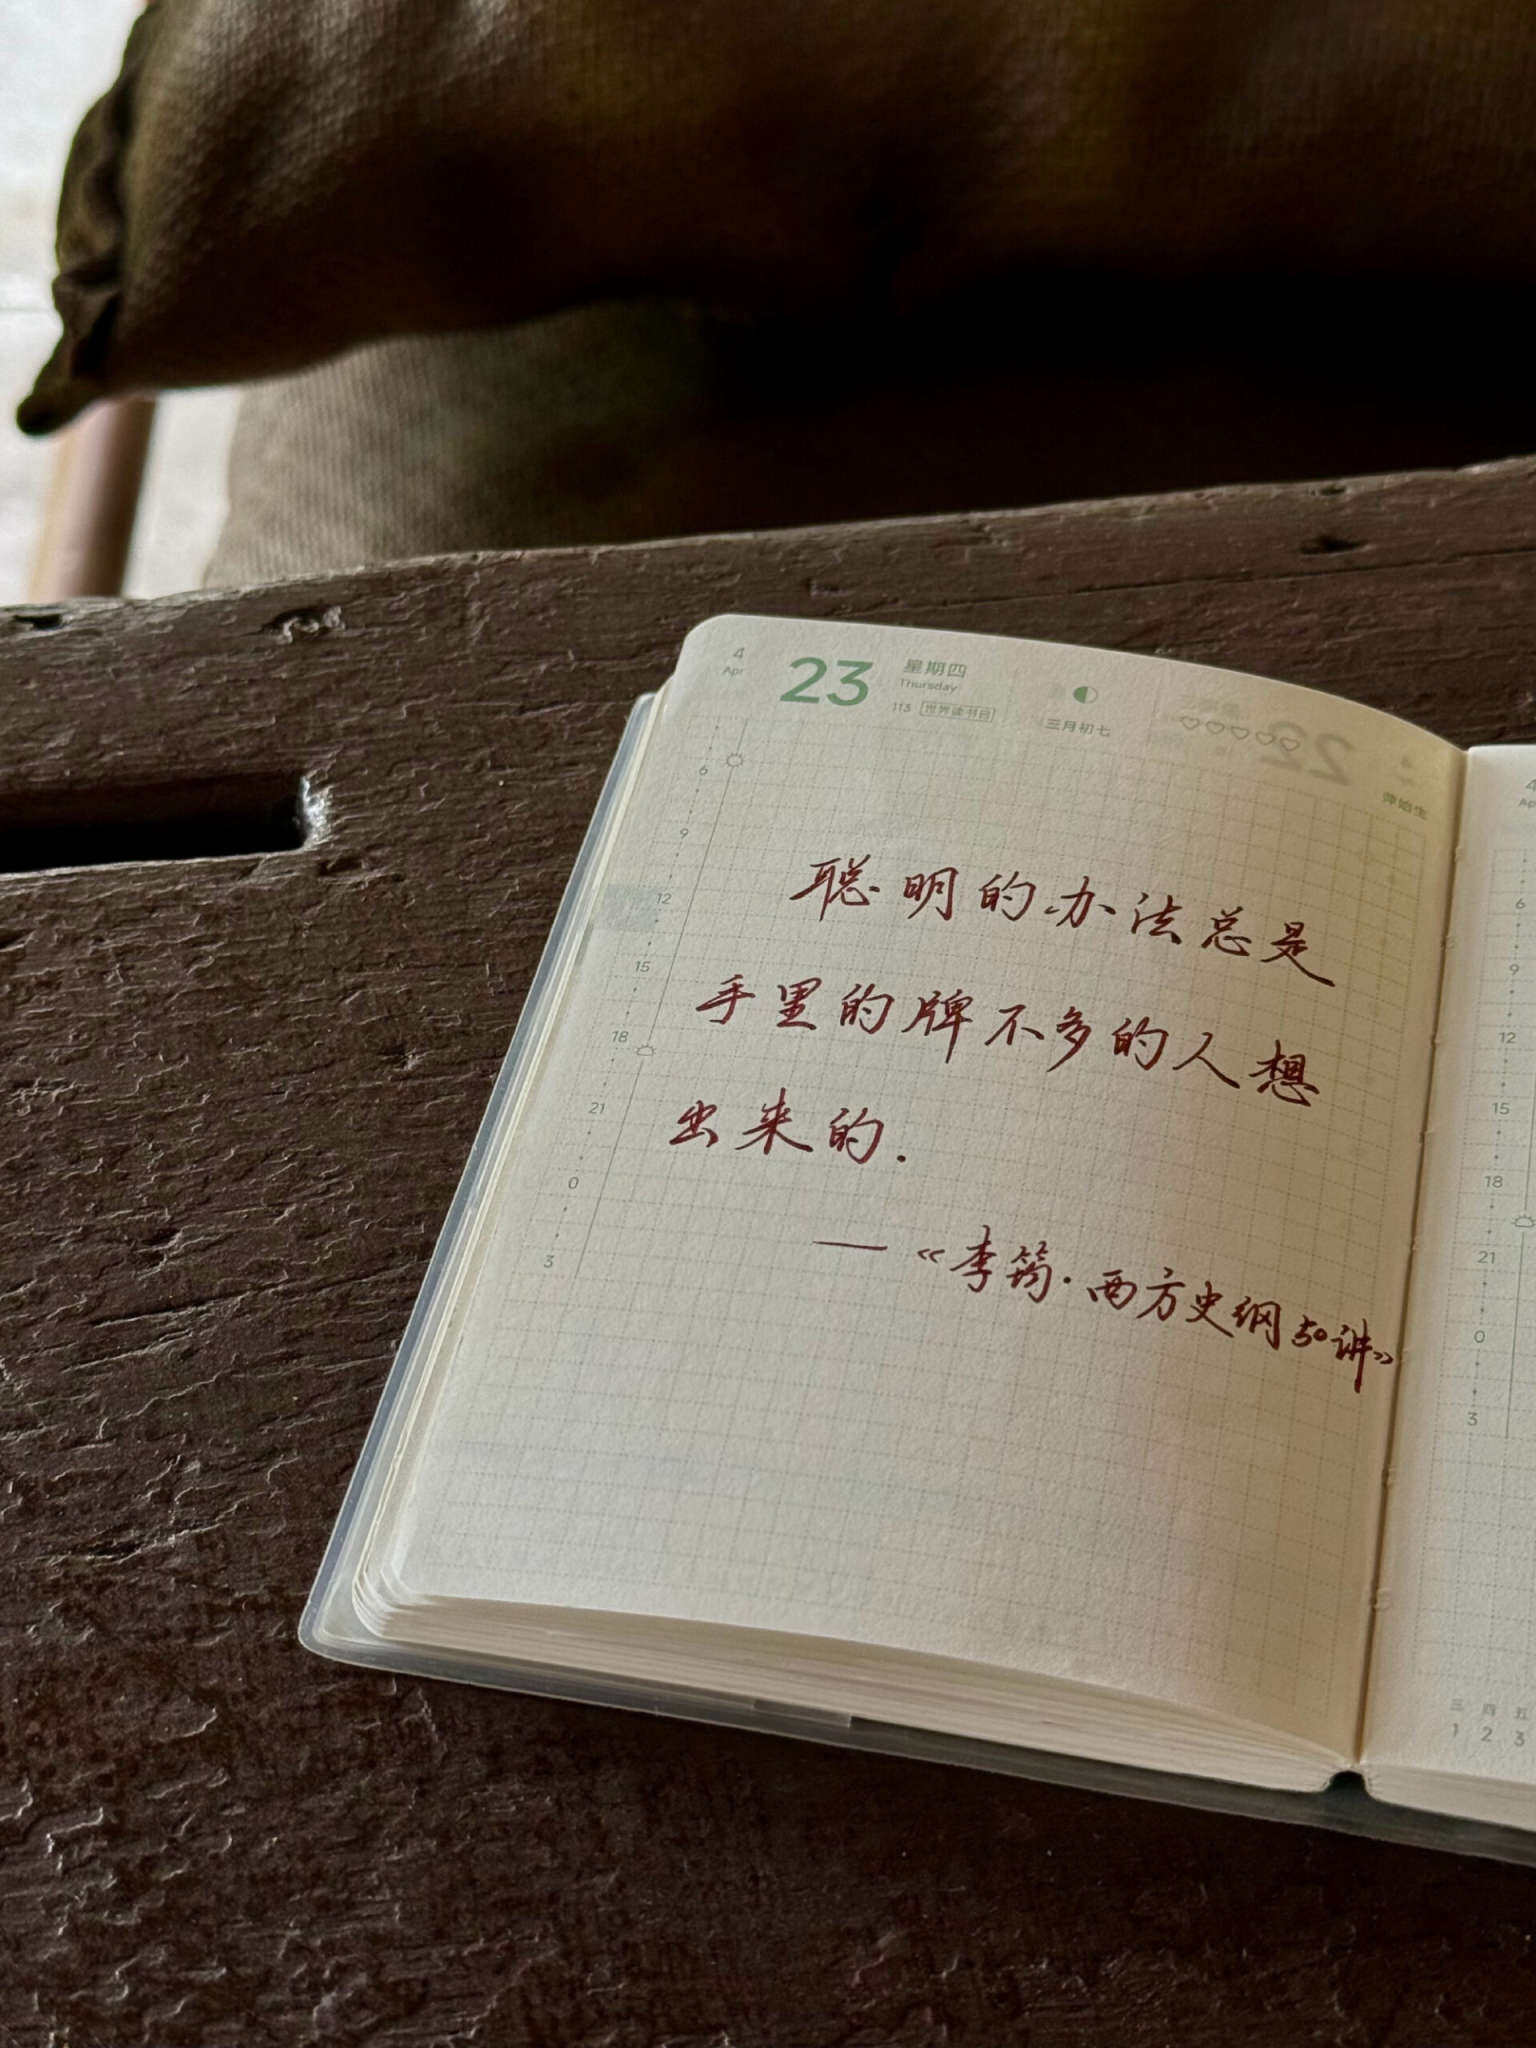 4
Apr
23
星期四
Thursday
113 世界读书日
三月初七
萍始生
6
9
12
15
18
21
0
3
聪明的办法总是
手里的牌不多的人想
出来的.
—《李筠·西方史纲50讲》
4
6
9
12
15
18
21
0
3
三 四 五
1 2 3